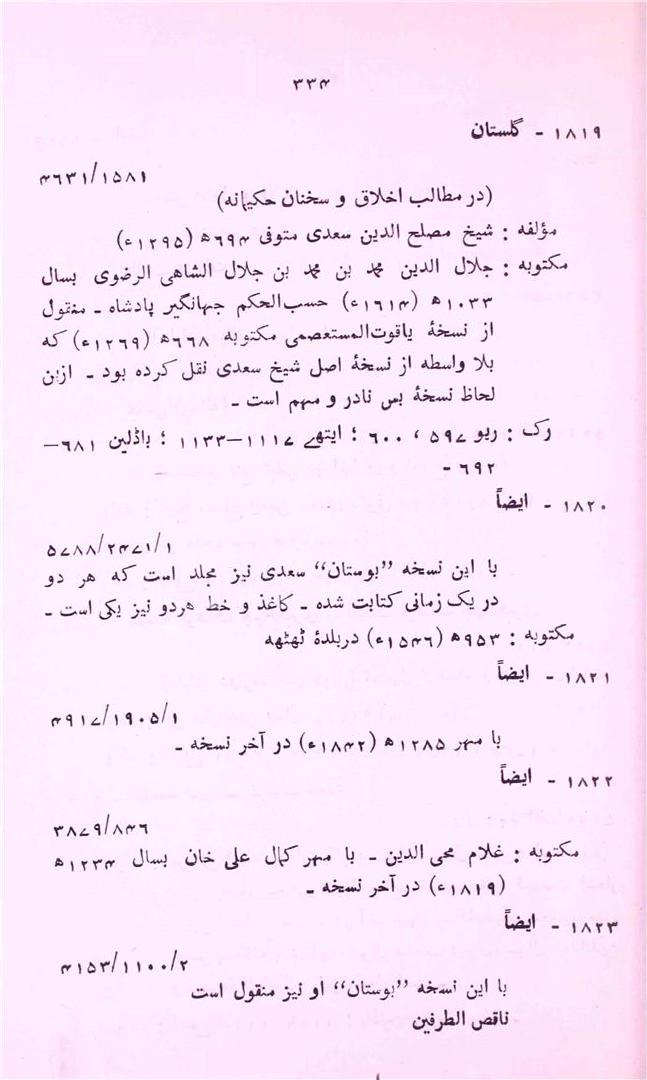 ۳۳۴
۱۸۱۹ - گلستان
۴٦۳۱/۱۵۸۱
(در مطالب اخلاق و سخنان حکیمانه)
مؤلفه : شیخ مصلح الدین سعدی متوفی ٦۹۴ھ (۱۲۹۵ء)
مکتوبه : جلال الدین محمد بن محمد بن جلال الشاهی الرضوی بسال
۱۰۳۳ھ (۱٦۱۴ء) حسب‌الحکم جهانگیر پادشاه ـ منقول
از نسخهٔ یاقوت‌المستعصمی مکتوبه ٦٦۸ھ (۱۲٦۹ء) که
بلا واسطه از نسخهٔ اصل شیخ سعدی نقل کرده بود ـ ازین
لحاظ نسخهٔ بس نادر و مهم است ـ
رک : ریو ۵۹۷ ، ٦۰۰ ؛ ایتھے ۱۱۱۷—۱۱۳۳ ؛ باڈلین ٦۸۱—
٦۹۲ -
۱۸۲۰ - ایضاً
۵۷۸۸/۲۴۷۱/۱
با این نسخه ”بوستان“ سعدی نیز مجلد است که هر دو
در یک زمانی کتابت شده ـ کاغذ و خط هردو نیز یکی است ـ
مکتوبه : ۹۵۳ھ (۱۵۴٦ء) دربلدهٔ ٹھٹھه
۱۸۲۱ - ایضاً
۴۹۱۷/۱۹۰۵/۱
با مهر ۱۲۸۵ھ (۱۸۴۲ء) در آخر نسخه ـ
۱۸۲۲ - ایضاً
۳۸۷۹/۸۴٦
مکتوبه : غلام محی الدین ـ با مهر کمال علی خان بسال ۱۲۳۴ھ
(۱۸۱۹ء) در آخر نسخه ـ
۱۸۲۳ - ایضاً
۴۱۵۳/۱۱۰۰/۲
با این نسخه ”بوستان“ او نیز منقول است
ناقص الطرفین